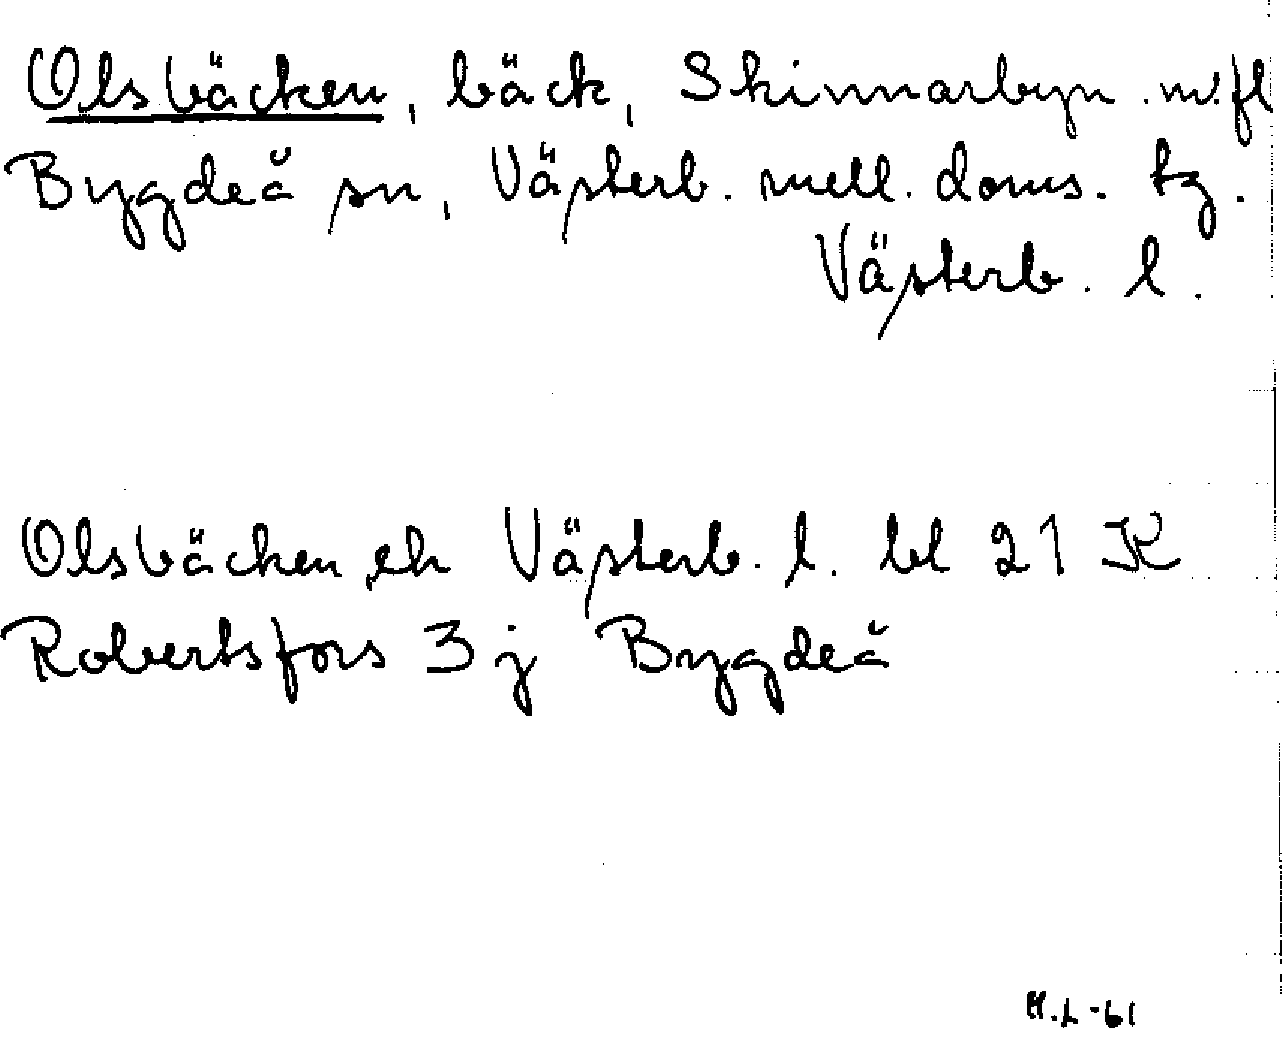 Olsbäcken, bäck, Skinnarbyn m.fl
Bygdeå sn, Västerb. mell. doms. tg.
Västerb. l.
Olsbäcken, ek Västerb. l. bl 21 K
Robertsfors 3 j Bygdeå
H.L -61